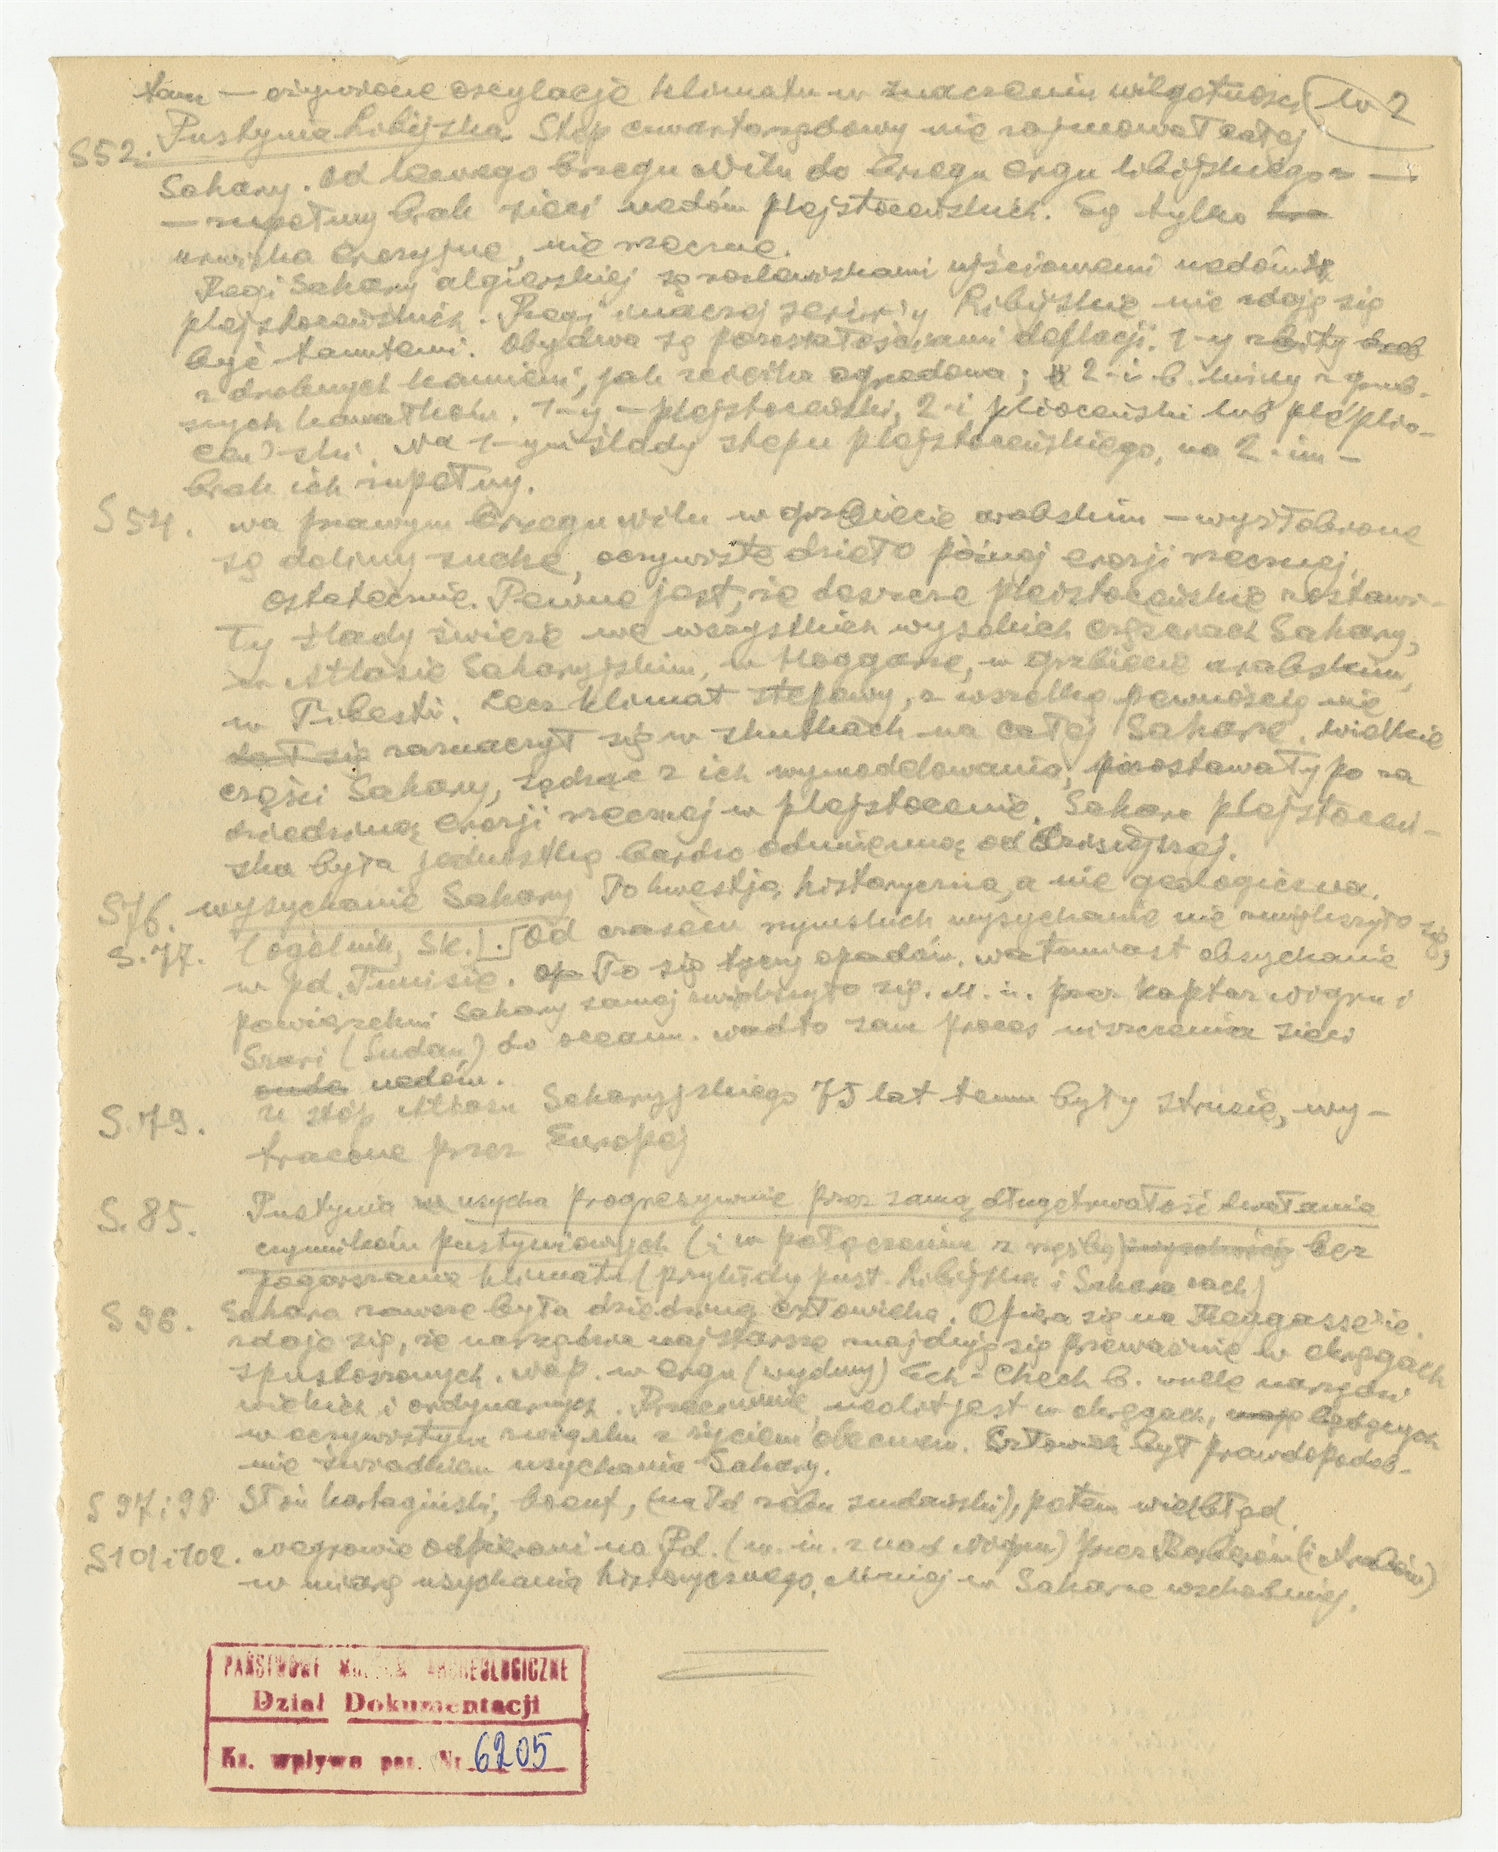 tam — ożywione oscylacje klimatu w znaczeniu wilgotności
No 2
S 52. Pustynia Libijska. Step czwartorzędowy nie zajmował całej
Sahary. Od lewego brzegu Nilu do brzegu ergu libijskiego —
— zupełny brak sieci uedów plejstoceńskich. Są tylko
urwiska erozyjne, nie rzeczne.
Regi Sahary algierskiej są rozlewiskami ujściowemi uedów
plejstoceńskich. Regi inaczej seriry Libijskie nie zdają się
być tamtemi. Obydwa są pozostałościami deflacji. 1-y zbity
z drobnych kamieni, jak ścieżka ogrodowa; 2-i b. luźny z grub-
szych kawałków. 1-y — plejstoceński, 2-i plioceński lub plio-
ceń?-ski. Na 1-ym ślady stepu plejstoceńskiego, na 2-im —
brak ich zupełny.
S 54. Na prawym brzegu Nilu w grzbiecie arabskim — wyżłobione
są doliny suche, oczywiste dzieło późnej erozji rzecznej.
Ostatecznie. Pewne jest, że deszcze plejstoceńskie zostawi-
ły ślady świeże we wszystkich wysokich obszarach Sahary,
w Atlasie Saharyjskim, w Hoggarze, w grzbiecie arabskim,
w Tibesti. Lecz klimat stepowy, z wszelką pewnością nie
dał się zaznaczył się w skutkach na całej Saharze. Wielkie
części Sahary, sądząc z ich wymodelowania, pozostawały po za
dziedziną erozji rzecznej w plejstocenie. Sahara plejstoceń-
ska była jednostką bardzo odmienną od dzisiejszej.
S 76. Wysychanie Sahary to kwestja historyczna, a nie geologiczna.
S. 77. (ogólnik, Sk.). [Od czasów rzymskich wysychanie nie zwiększyło się,
w pd. Tunisie. To się tyczy opadów. Natomiast obsychanie
powierzchni Sahary samej zwiększyło się. M. in. przez kaptaż Nigru i
Szari (Sudan) do oceanu. Nadto sam proces niszczenia sieci
uedów.
S. 79. U stóp Atlasu Saharyjskiego 75 lat temu były strusie, wy-
tracone przez Europej
S. 85. Pustynia usycha progresywnie przez samą długotrwałość działania
czynników pustyniowych (i w połączeniu z rzeźbą) bez
pogorszenia klimatu (przykłady pust. Libijska i Sahara zach)
S 96. Sahara zawsze była dziedziną człowieka. Opiera się na Reygass'ie.
Zdaje się, że narzędzia najstarsze znajdują się przeważnie w okręgach
spustoszonych. Nap. w ergu (wydmy) Ech-Chech b. wiele narzędzi
wielkich i ordynarnych. Przeciwnie, neolit jest w okręgach, będących
w oczywistym związku z życiem obecnem. Człowiek był prawdopodob-
nie świadkiem usychania Sahary.
S 97 i 98 Słoń kartagiński, bawół, (na Pd zebu sudański), potem wielbłąd.
S 101 i 102. Negrowie odpierani na Pd. (m. in. z nad Nigru) przez Berberów (i Arabów)
w miarę usychania historycznego. Mniej w Saharze wschodniej.
PAŃSTWOWE MUZEUM ARCHEOLOGICZNE
Dział Dokumentacji
Ks. wpływu poz. Nr 6205